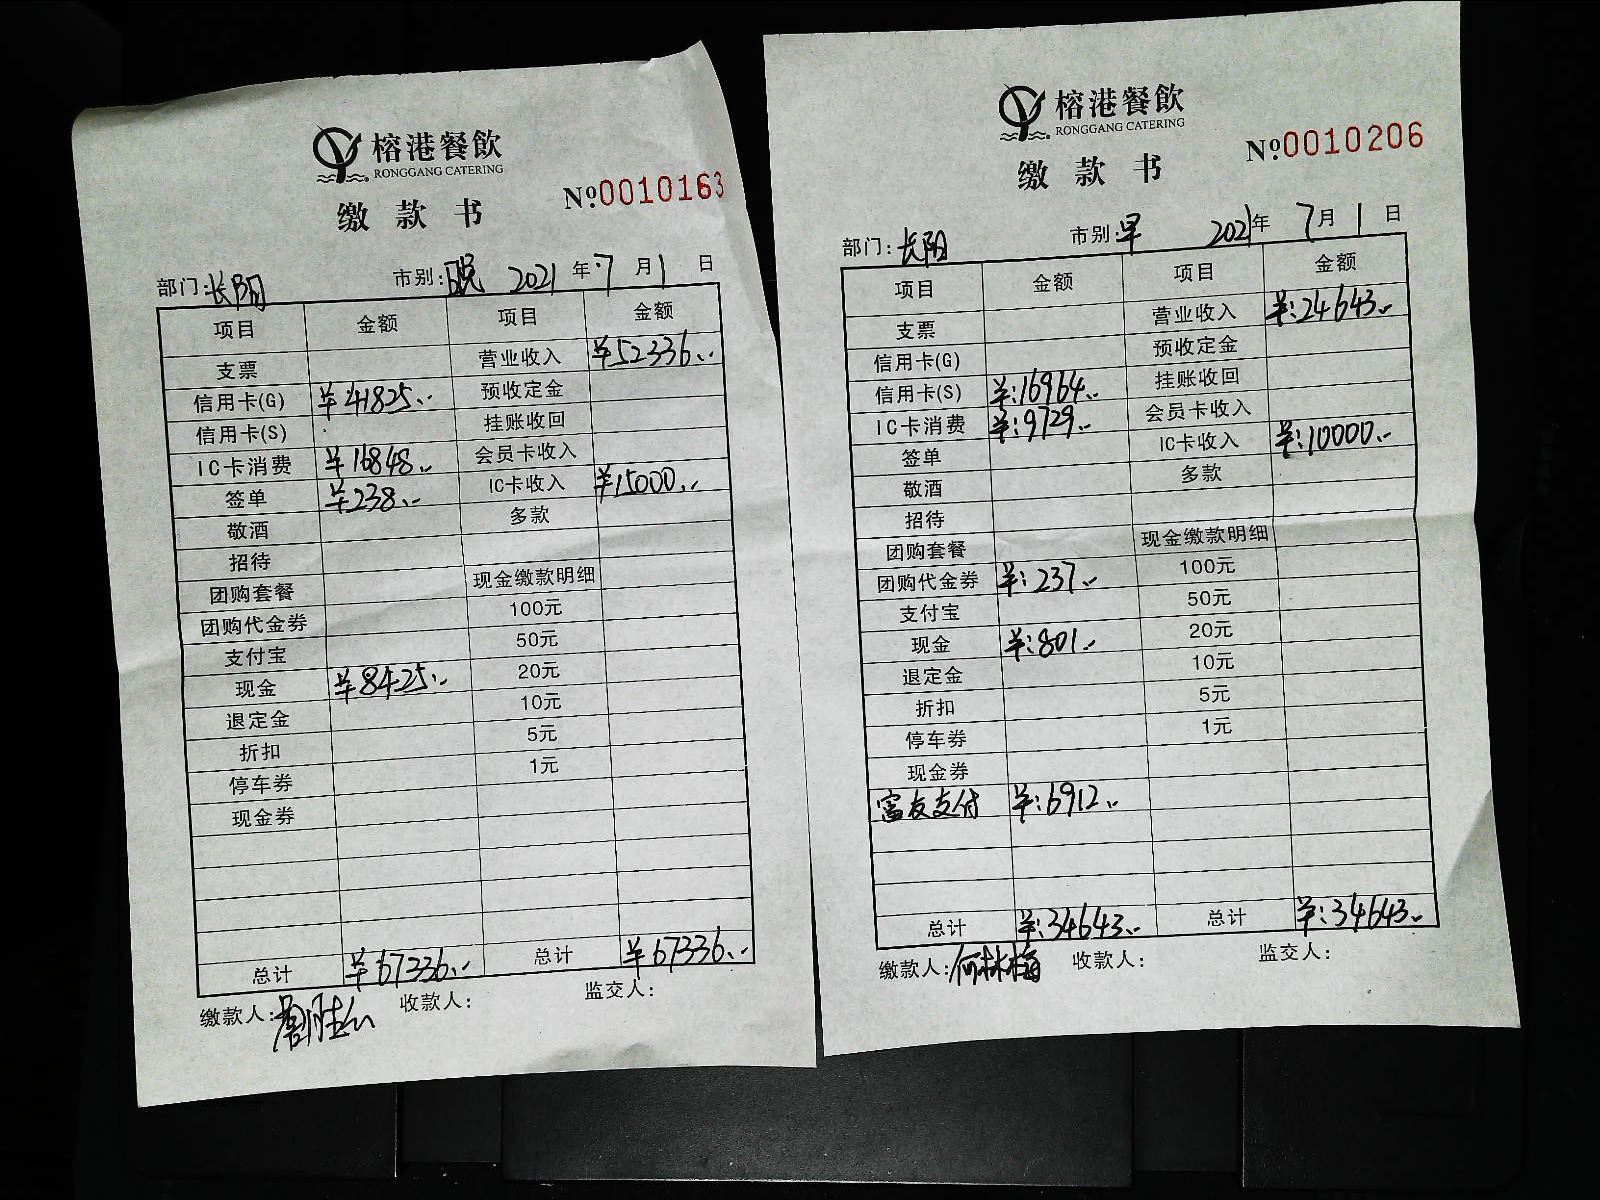 榕港餐飲
RONGGANG CATERING
缴款书
№0010163
部门:长阳 市别:晚 2021年7月1日
项目 金额 项目 金额
支票 营业收入 ¥52336..
信用卡(G) ¥41825.. 预收定金
信用卡(S) 挂账收回
IC卡消费 ¥16848.. 会员卡收入
签单 ¥238.. IC卡收入 ¥15000..
敬酒 多款
招待
团购套餐 现金缴款明细
团购代金券 100元
支付宝 50元
现金 ¥8425.. 20元
退定金 10元
折扣 5元
停车券 1元
现金券
总计 ¥67336.. 总计 ¥67336..
缴款人: 收款人: 监交人:
榕港餐飲
RONGGANG CATERING
缴款书
№0010206
部门:长阳 市别:早 2021年7月1日
项目 金额 项目 金额
支票 营业收入 ¥:24643..
信用卡(G) 预收定金
信用卡(S) ¥:16964.. 挂账收回
IC卡消费 ¥:9729.. 会员卡收入
签单 IC卡收入 ¥:10000..
敬酒 多款
招待
团购套餐 现金缴款明细
团购代金券 ¥:237.. 100元
支付宝 50元
现金 ¥:801.. 20元
退定金 10元
折扣 5元
停车券 1元
现金券
富友支付 ¥:6912..
总计 ¥:34643.. 总计 ¥:34643..
缴款人:何林梅 收款人: 监交人: